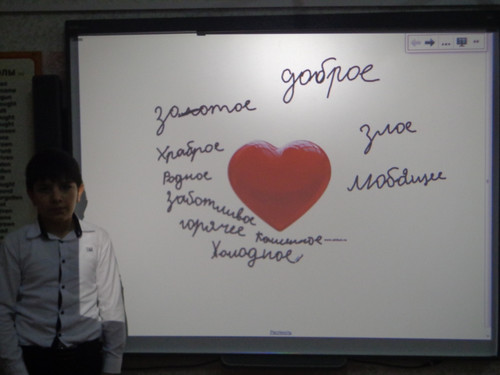 доброе
золотое
злое
Храброе
Родное
любящие
Заботливое
горячее
Каменное
Холодное